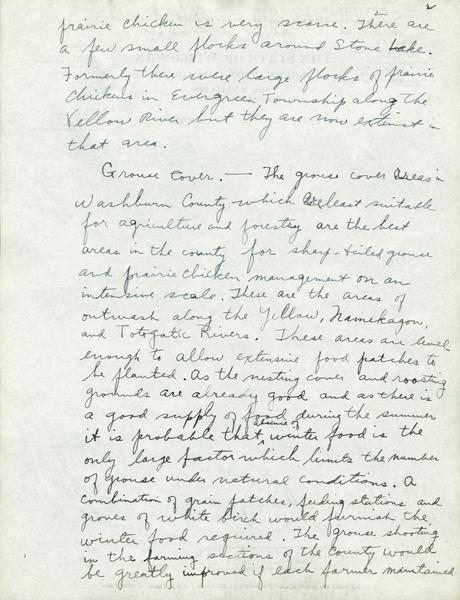 2
prairie chicken is very scarse. There are
a few small flocks around Stone Lake.
Formerly there were large flocks of prairie
chickens in Evergreen Township along the
Yellow River but they are now extinct in
that area.
Grouse Cover. — The grouse cover areas in
Washburn County which are least suitable
for agriculture and forestry are the best
areas in the county for sharp-tailed grouse
and prairie chicken management on an
intensive scale. These are the areas of
outwash along the Yellow, Namekagon,
and Totogatic Rivers. These areas are level
enough to allow extensive food patches to
be planted. As the nesting cover and roosting
grounds are already good and as there is
a good supply of food during the summer
it is probable that absence of winter food is the
only large factor which limits the number
of grouse under natural conditions. A
combination of grain patches, feeding stations and
groves of white birch would furnish the
winter food required. The grouse shooting
in the farming sections of the county would
be greatly improved if each farmer maintained